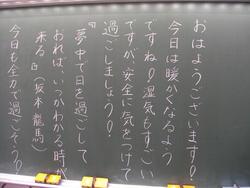 おはようございます!
今日は暖かくなるよう
ですね!湿気もすごい
ですが安全に気をつけて
過ごしましょう!
『夢中で日を過ごして
おれば、いつかわかる時が
来る』(坂本龍馬)
今日も全力で過ごそう!